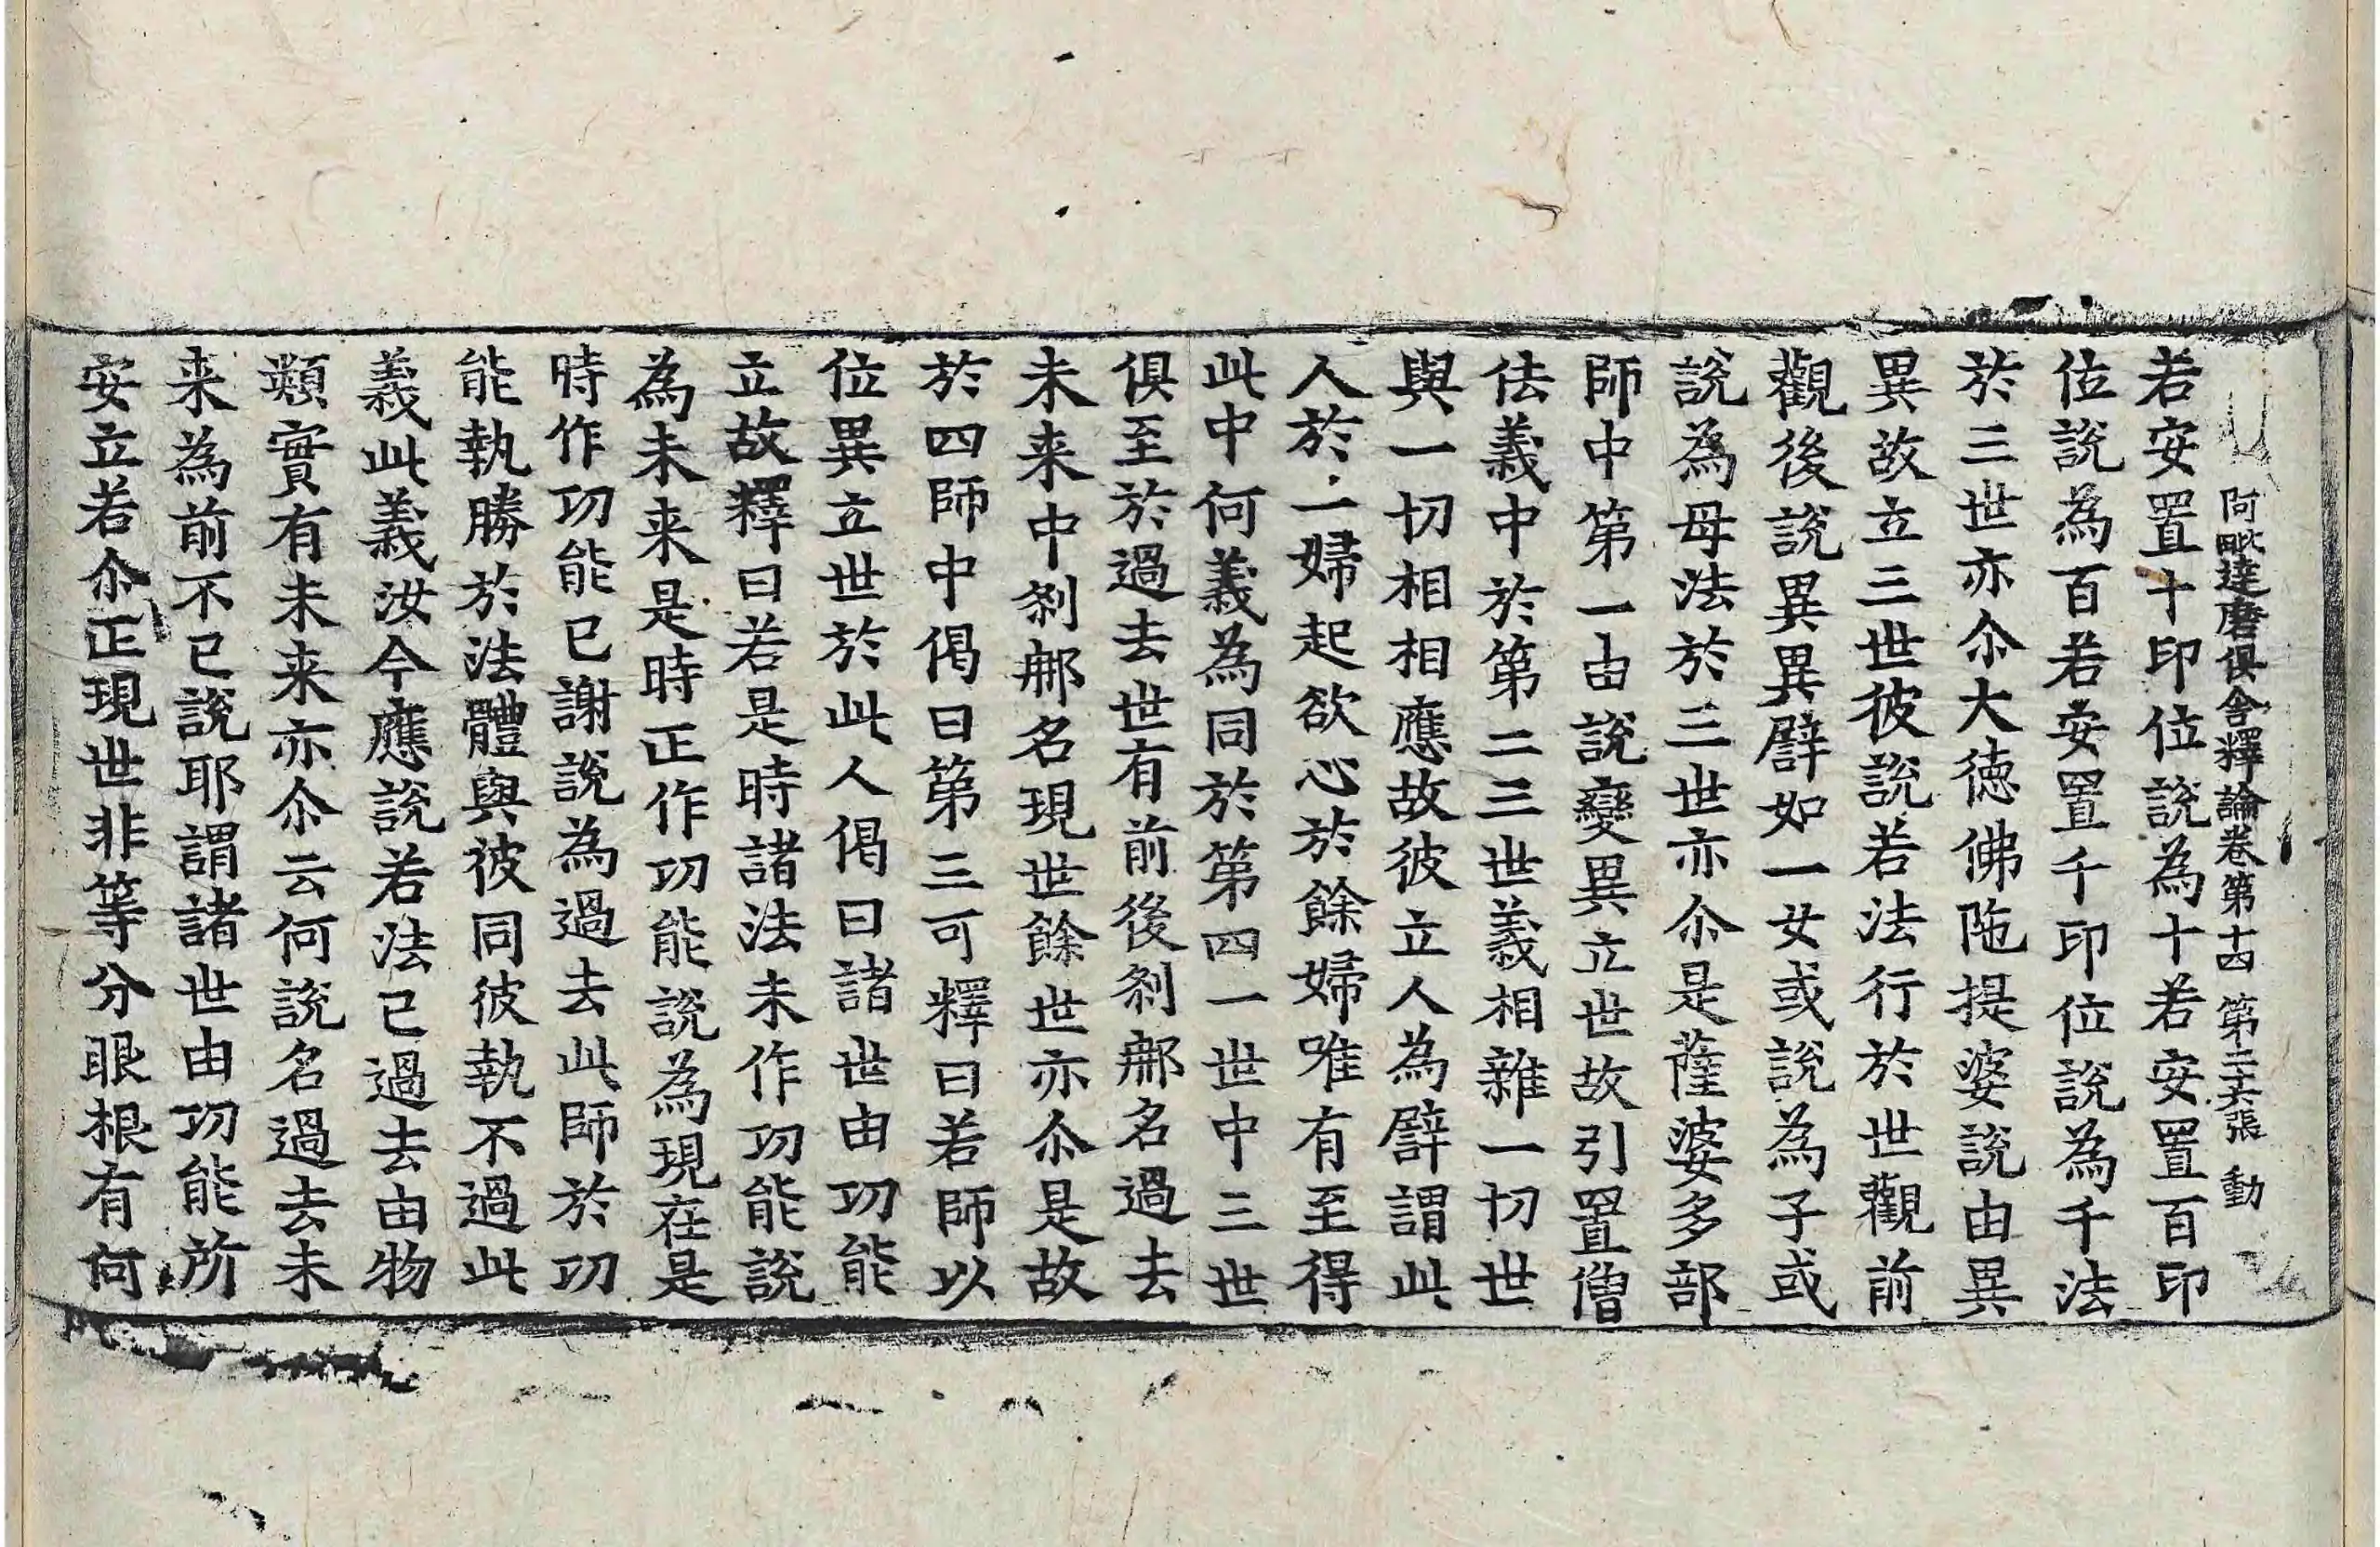 阿毗達磨俱舍釋論卷第十四　第二十六張　動
若安置十印位說為十若安置百印
位說為百若安置千印位說為千法
於三世亦尒大德佛陁提婆說由異
異故立三世彼說若法行於世觀前
觀後說異異譬如一女或說為子或
說為母法於三世亦尒是薩婆多部
師中第一由說變異立世故引置僧
佉義中於第二三世義相雜一切世
與一切相相應故彼立人為譬謂此
人於一婦起欲心於餘婦唯有至得
此中何義為同於第四一世中三世
俱至於過去世有前後刹那名過去
未来中刹那名現世餘世亦尒是故
於四師中偈曰第三可釋曰若師以
位異立世於此人偈曰諸世由功能
立故釋曰若是時諸法未作功能說
為未来是時正作功能說為現在是
時作功能已謝說為過去此師於功
能執勝於法體與彼同彼執不過此
義此義汝今應說若法已過去由物
類實有未来亦尒云何說名過去未
来為前不已說耶謂諸世由功能所
安立若尒正現世非等分眼根有何